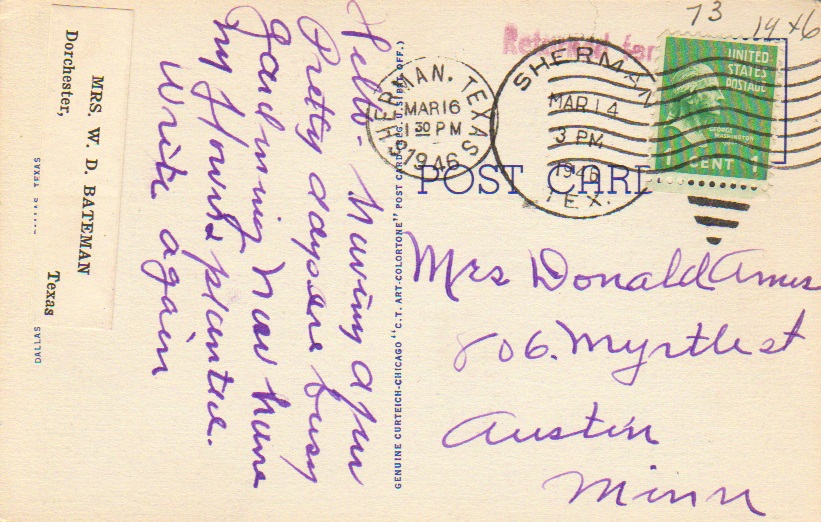 MRS. W. D. BATEMAN
Dorchester,
Texas
DALLAS
TEXAS
Hello- Having a few
Pretty days are busy
have
my flowers planted.
Write again
GENUINE CURTEICH-CHICAGO "C.T. ART-COLORTONE" POST CARD (REG. U.S. PAT. OFF.)
73
14 x 6
Returned for
SHERMAN, TEXAS
MAR 16
1 30 PM
1946
SHERMAN
MAR 14
3 PM
1946
TEX.
UNITED
STATES
POSTAGE
GEORGE
WASHINGTON
1 CENT 1
POST CARD
Mrs Donald Ames
806. Myrtle st
Austin
Minn